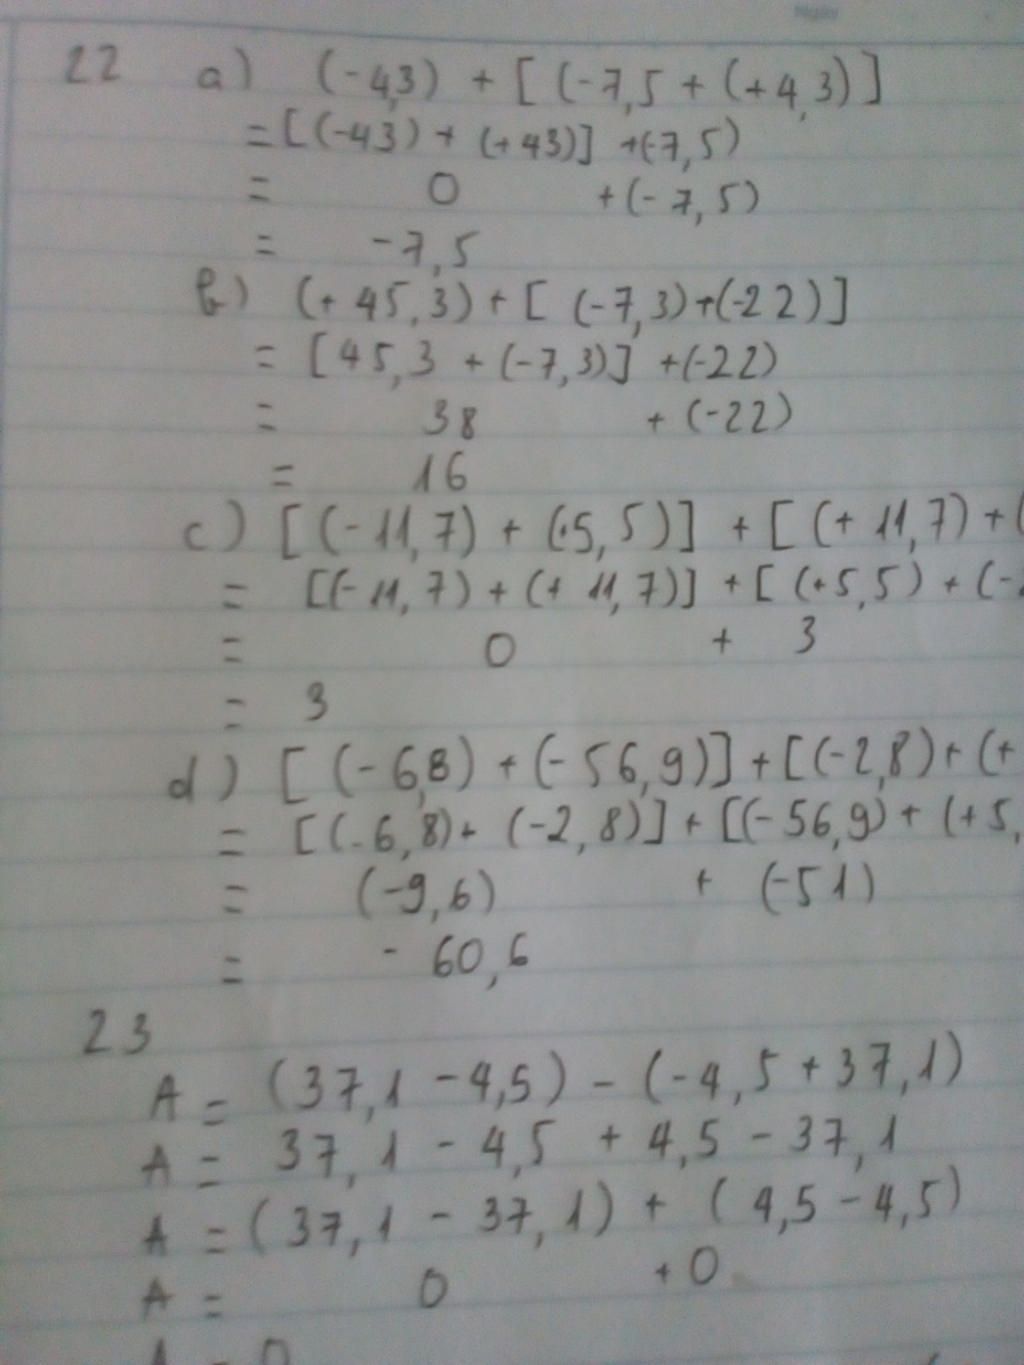 Ngày
22 a) (-4,3) + [(-7,5 + (+4,3)]
= [(-43) + (+43)] +(-7,5)
= 0 +(-7,5)
= -7,5
b) (+ 45,3) + [ (-7,3)+(-22)]
= [45,3 + (-7,3)] +(-22)
= 38 + (-22)
= 16
c) [(-11,7) + (+5,5)] + [(+ 11,7) + (
= [(-11,7) + (+ 11,7)] + [ (+5,5) + (-2
= 0 + 3
= 3
d) [ (-6,8) + (-56,9)] + [(-2,8) + (+
= [(-6,8) + (-2,8)] + [(-56,9) + (+5,
= (-9,6) + (-51)
= - 60,6
23
A = (37,1 - 4,5) - (-4,5 + 37,1)
A = 37,1 - 4,5 + 4,5 - 37,1
A = (37,1 - 37,1) + (4,5 - 4,5)
A = 0 + 0
A = 0